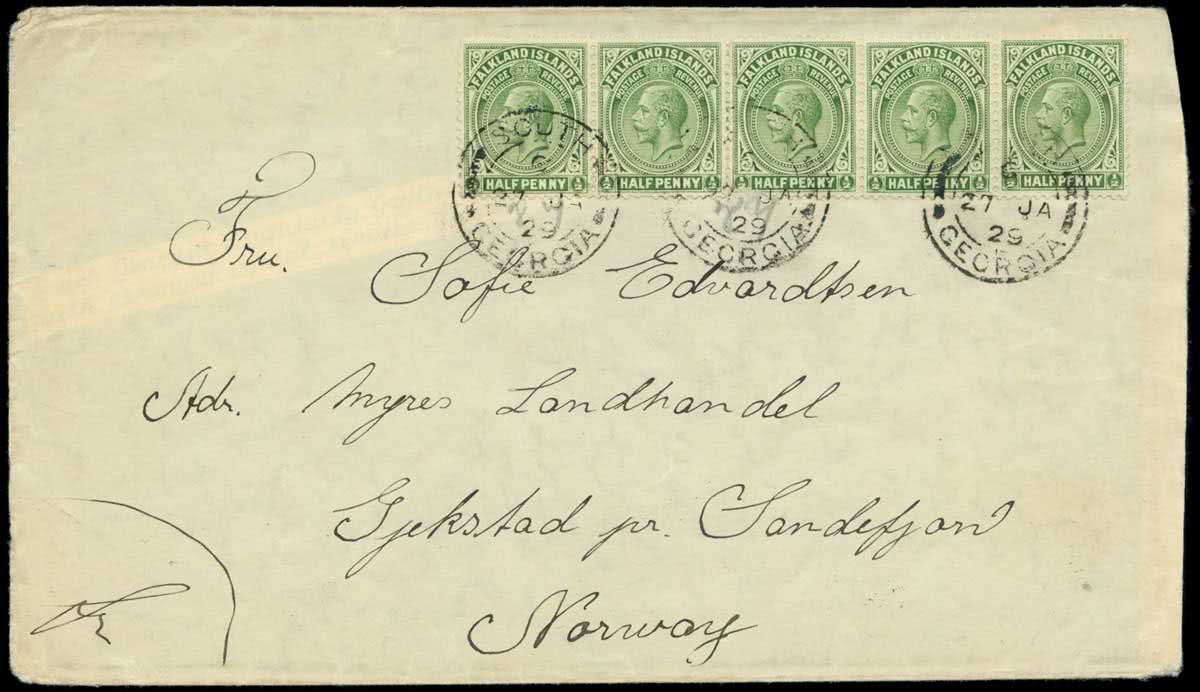 FALKLAND ISLANDS FALKLAND ISLANDS FALKLAND ISLANDS FALKLAND ISLANDS FALKLAND ISLANDS
POSTAGE REVENUE POSTAGE REVENUE POSTAGE REVENUE POSTAGE REVENUE POSTAGE REVENUE
½ HALF PENNY ½ ½ HALF PENNY ½ ½ HALF PENNY ½ ½ HALF PENNY ½ ½ HALF PENNY ½
SOUTH
27 JA 29
GEORGIA
JA 29
GEORGIA
27 JA
29
GEORGIA
Fru.
Sofie Edvardtsen
Adr. Myres Landhandel
Gjekstad pr. Sandefjord
Norway